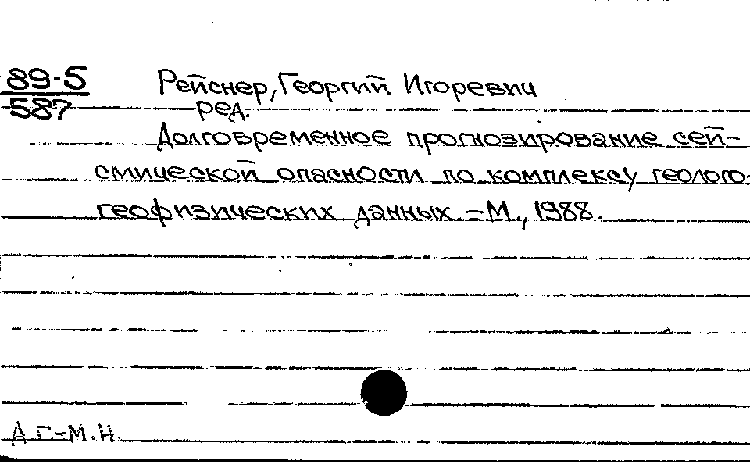 89-5
587
Рейснер, Георгий Игоревич
ред.
Долговременное прогнозирование сей-
смической опасности по комплексу геолого-
геофизических данных. - М., 1988.
Д Г-М.Н.